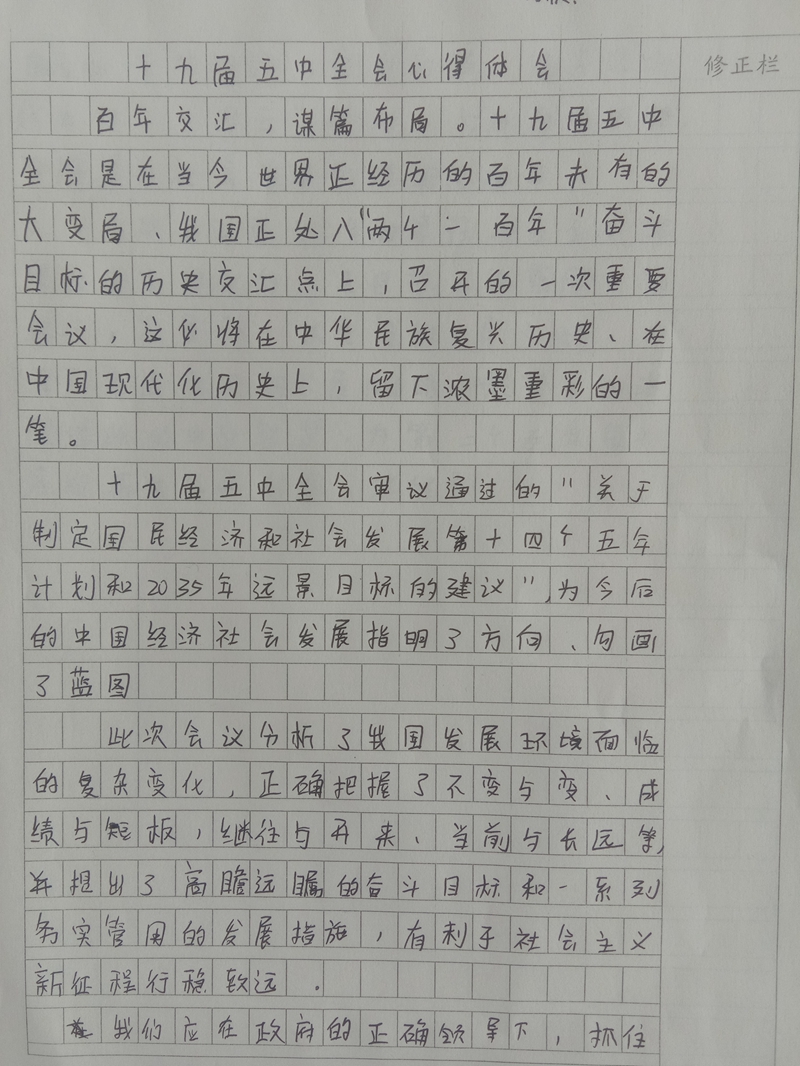 十九届五中全会心得体会
修正栏
百年交汇，谋篇布局。十九届五中
全会是在当今世界正经历的百年未有的
大变局、我国正处八“两个一百年”奋斗
目标的历史交汇点上，召开的一次重要
会议，这必将在中华民族复兴历史、在
中国现代化历史上，留下浓墨重彩的一
笔。
十九届五中全会审议通过的“关于
制定国民经济和社会发展第十四个五年
计划和2035年远景目标的建议”，为今后
的中国经济社会发展指明了方向、勾画
了蓝图
此次会议分析了我国发展环境面临
的复杂变化，正确把握了不变与变、成
绩与短板，继往与开来、当前与长远等，
并提出了高瞻远瞩的奋斗目标和一系列
务实管用的发展措施，有利于社会主义
新征程行稳致远．
我们应在政府的正确领导下，抓住